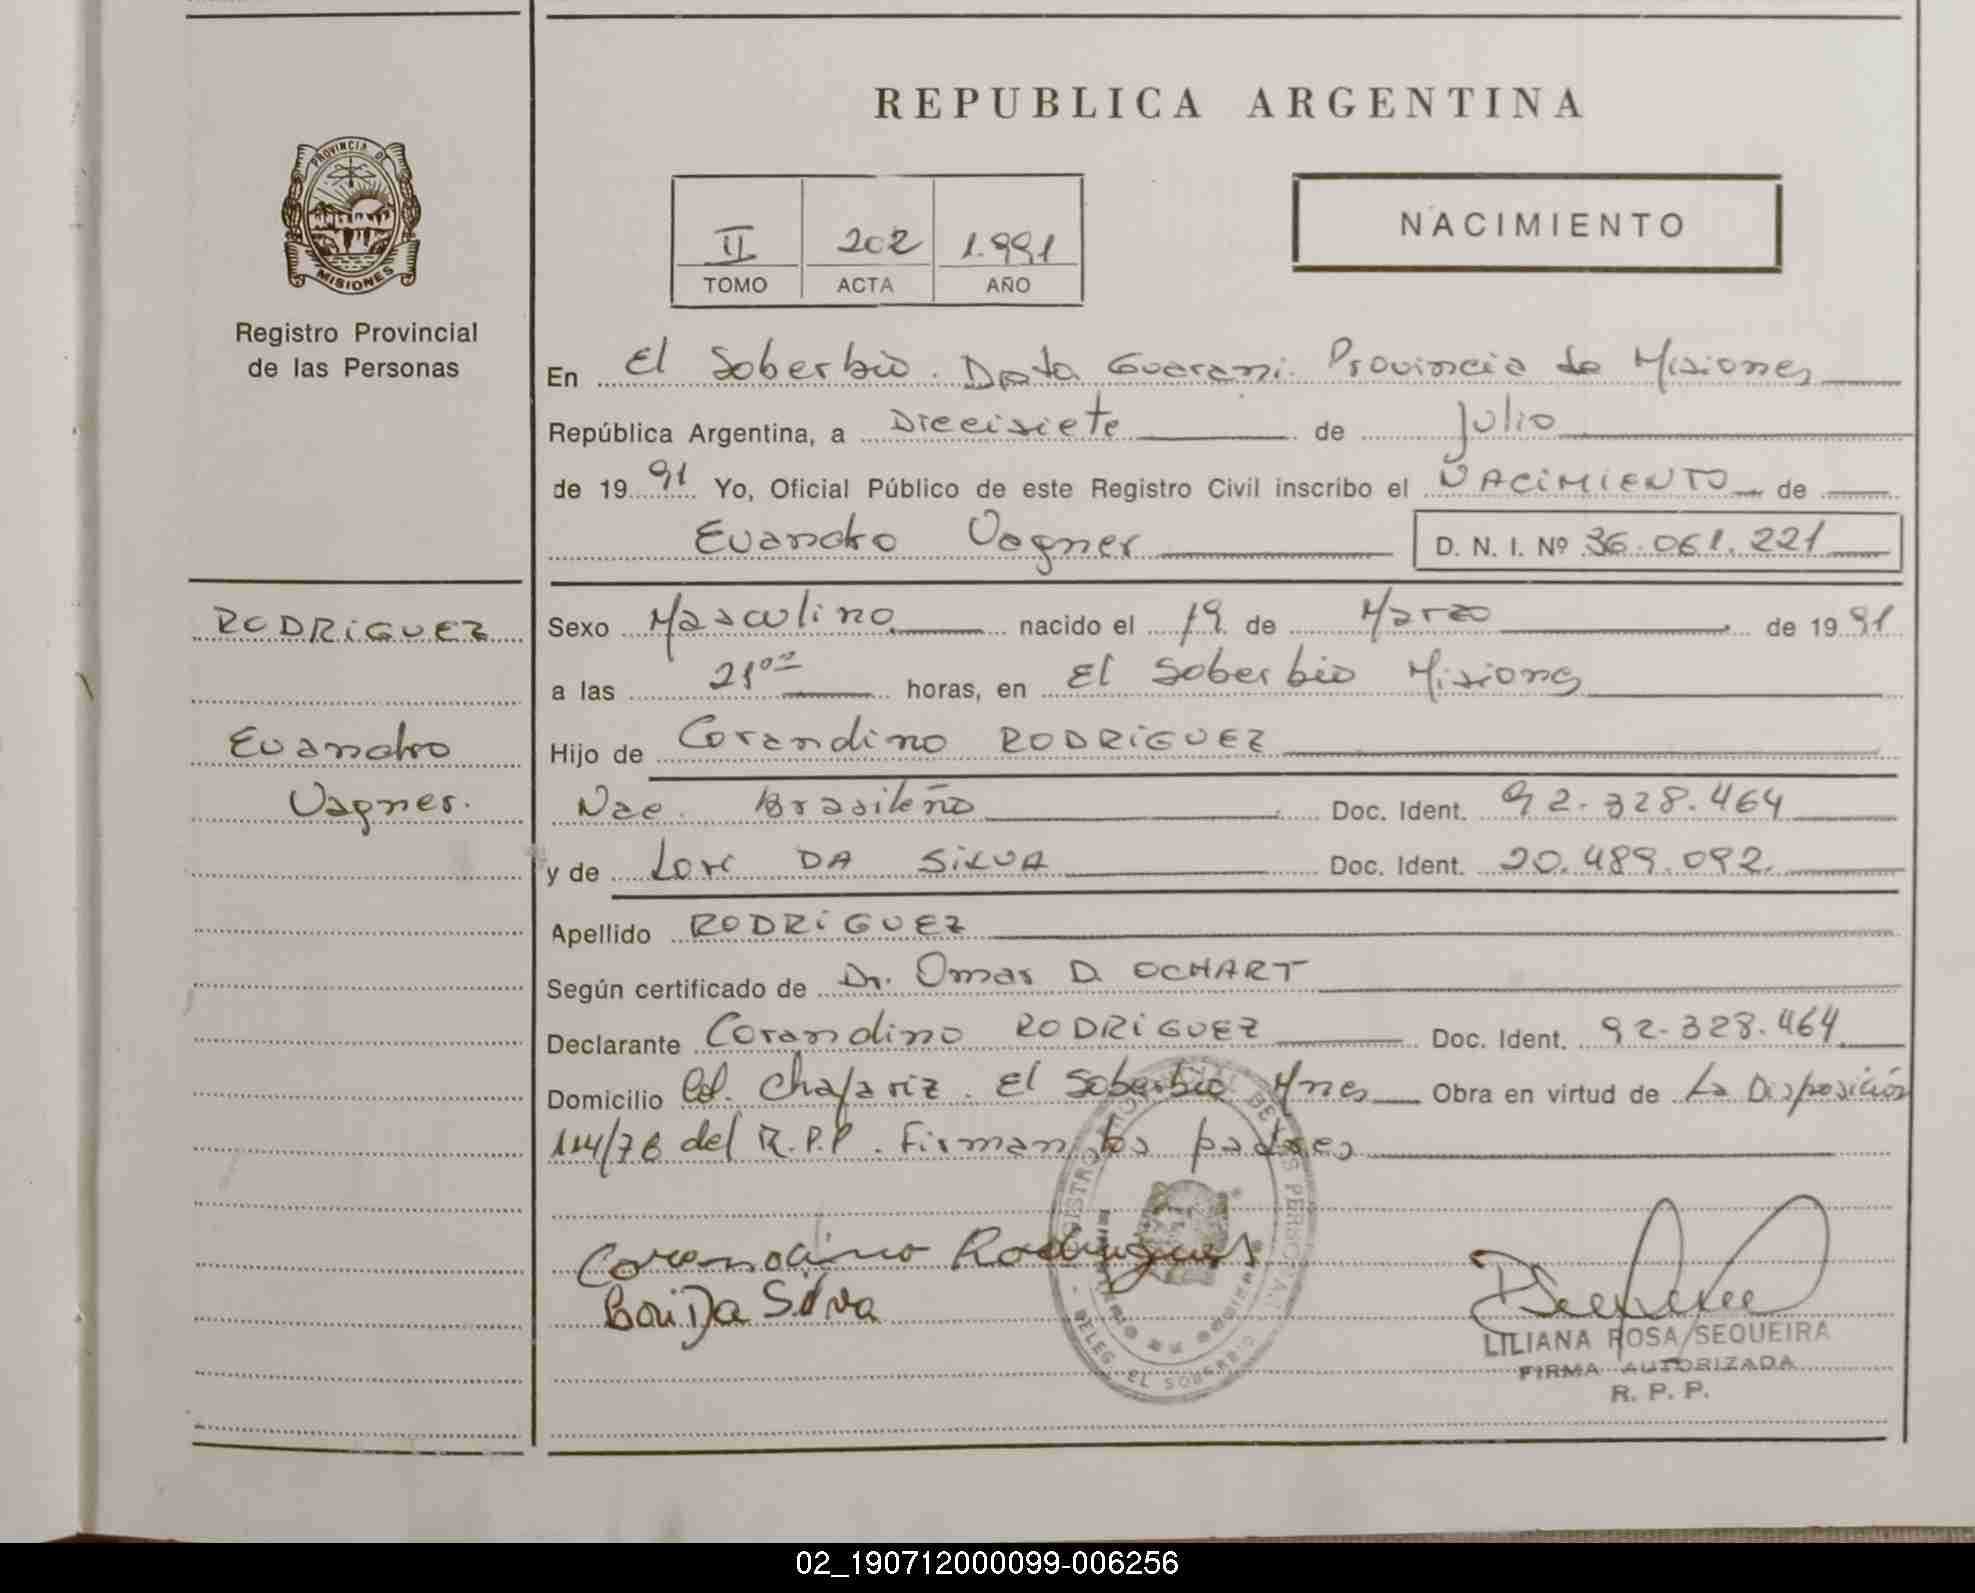 PROVINCIA DE
MISIONES
Registro Provincial
de las Personas
RODRIGUEZ
Evandro
Vagner.
REPUBLICA ARGENTINA
II 202 1.991
TOMO ACTA AÑO
NACIMIENTO
En El Soberbio. Dpto Guarani. Provincia de Misiones
República Argentina, a Diecisiete de Julio
de 1991 Yo, Oficial Público de este Registro Civil inscribo el NACIMIENTO de
Evandro Vagner D. N. I. Nº 36.061.221
Sexo Masculino nacido el 19 de Marzo de 1991
a las 21⁰⁰ horas, en El Soberbio Misiones
Hijo de Corandino RODRIGUEZ
Nac. Brasileño Doc. Ident. 92.328.464
y de Lori DA SILVA Doc. Ident. 20.489.092.
Apellido RODRIGUEZ
Según certificado de Dr. Omar D. OCHART
Declarante Corandino RODRIGUEZ Doc. Ident. 92.328.464
Domicilio Col. Chafariz. El Soberbio Mnes Obra en virtud de La Disposición
114/78 del R.P.P. Firman los padres
Corandino Rodrigues
Lori Da Silva
REGISTRO PROVINCIAL DE LAS PERSONAS
DELEG. EL SOBERBIO
LILIANA ROSA SEQUEIRA
FIRMA AUTORIZADA
R. P. P.
02_190712000099-006256